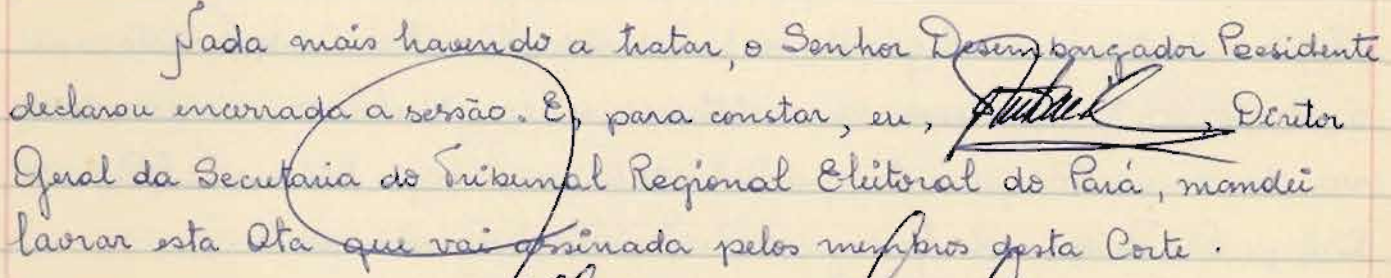 Nada mais havendo a tratar, o Senhor Desembargador Presidente
declarou encerrada a sessão. E, para constar, eu, , Diretor
Geral da Secretaria do Tribunal Regional Eleitoral do Pará, mandei
lavrar esta Ata que vai assinada pelos membros desta Corte.